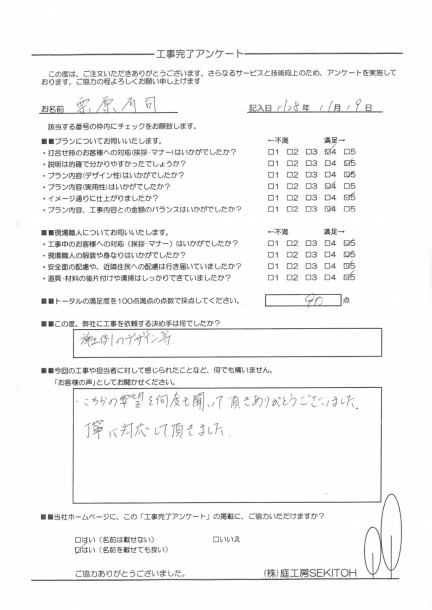 工事完了アンケート
この度は、ご注文いただきありがとうございます。さらなるサービスと技術向上のため、アンケートを実施して
おります。ご協力の程よろしくお願い申し上げます
お名前 栗原有司 記入日 H28年 11月 19日
該当する番号の枠内にチェックをお願致します。
■■プランについてお伺いいたします。 ←不満 満足→
・打合せ時のお客様への対応(挨拶・マナー)はいかがでしたか? □1 □2 □3 ☑4 □5
・説明は的確で分かりやすかったでしょうか? □1 □2 □3 □4 ☑5
・プラン内容(デザイン性)はいかがでしたか? □1 □2 □3 □4 ☑5
・プラン内容(実用性)はいかがでしたか? □1 □2 □3 ☑4 □5
・イメージ通りに仕上がりましたか? □1 □2 □3 □4 ☑5
・プラン内容、工事内容との金額のバランスはいかがでしたか? □1 □2 □3 ☑4 □5
■■現場職人についてお伺いいたします。 ←不満 満足→
・工事中のお客様への対応(挨拶・マナー)はいかがでしたか? □1 □2 □3 □4 ☑5
・現場職人の服装や身なりはいかがでしたか? □1 □2 □3 □4 ☑5
・安全面の配慮や、近隣住民への配慮は行き届いていましたか? □1 □2 □3 □4 ☑5
・道具・材料の後片付けや清掃はしっかりできていましたか? □1 □2 □3 □4 ☑5
■■トータルの満足度を100点満点の点数で採点してください。 90 点
■■この度、弊社に工事を依頼する決め手は何でしたか?
施工例のデザイン等
■■今回の工事や担当者に対して感じられたことなど、何でも構いません。
「お客様の声」としてお聞かせください。
・こちらの要望を何度も聞いて頂きありがとうございました。
丁寧に対応して頂きました。
■■当社ホームページに、この「工事完了アンケート」の掲載に、ご協力いただけますか?
□はい(名前は載せない) □いいえ
☑はい(名前を載せても良い)
ご協力ありがとうございました。 (株)庭工房SEKITOH